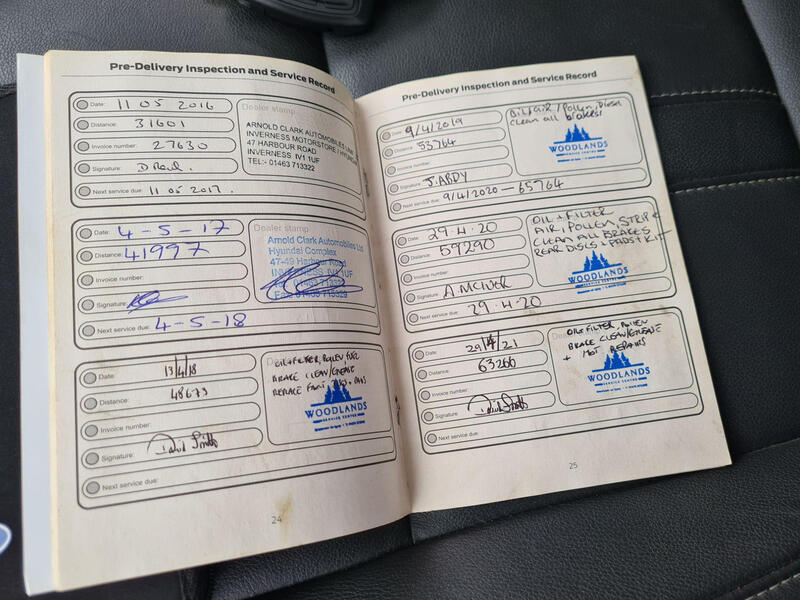 Pre-Delivery Inspection and Service Record
Date: 11 05 2016
Distance: 31601
Invoice number: 27630
Signature: D Reid
Next service due: 11 05 2017.
Dealer stamp
ARNOLD CLARK AUTOMOBILES LIMITED
INVERNESS MOTORSTORE / HYUNDAI
47 HARBOUR ROAD
INVERNESS IV1 1UF
TEL:- 01463 713322
Date: 4-5-17
Distance: 41997
Invoice number:
Signature:
Next service due: 4-5-18
Dealer stamp
Arnold Clark Automobiles Ltd
Hyundai Complex
47-49 Harbour Road
INVERNESS IV1 1UF
Date: 13/4/18
Distance: 48673
Invoice number:
Signature: David Smith
Next service due:
OIL+FILTER, POLLEN FUEL
BRAKE CLEAN/GREASE
REPLACE FRNT DISCS + PADS
WOODLANDS
SERVICE CENTRE
24
Pre-Delivery Inspection and Service Record
Date: 9/4/2019
Distance: 53764
Invoice number:
Signature: J. ARDY
Next service due: 9/4/2020 - 65764
Oil/Air/Pollen, Diesel
clean all brakes!
WOODLANDS
SERVICE CENTRE
Date: 29.4.20
Distance: 59290
Invoice number:
Signature: A. MCIVER
Next service due: 29.4.20
OIL + FILTER
AIR, POLLEN, STRIP &
CLEAN ALL BRAKES
REAR DISCS + PADS + KIT
WOODLANDS
Date: 29/4/21
Distance: 63266
Invoice number:
Signature: David Smith
Next service due:
OIL FILTER, POLLEN
BRAKE CLEAN/GREASE
+ MOT REPAIRS
WOODLANDS
SERVICE CENTRE
25